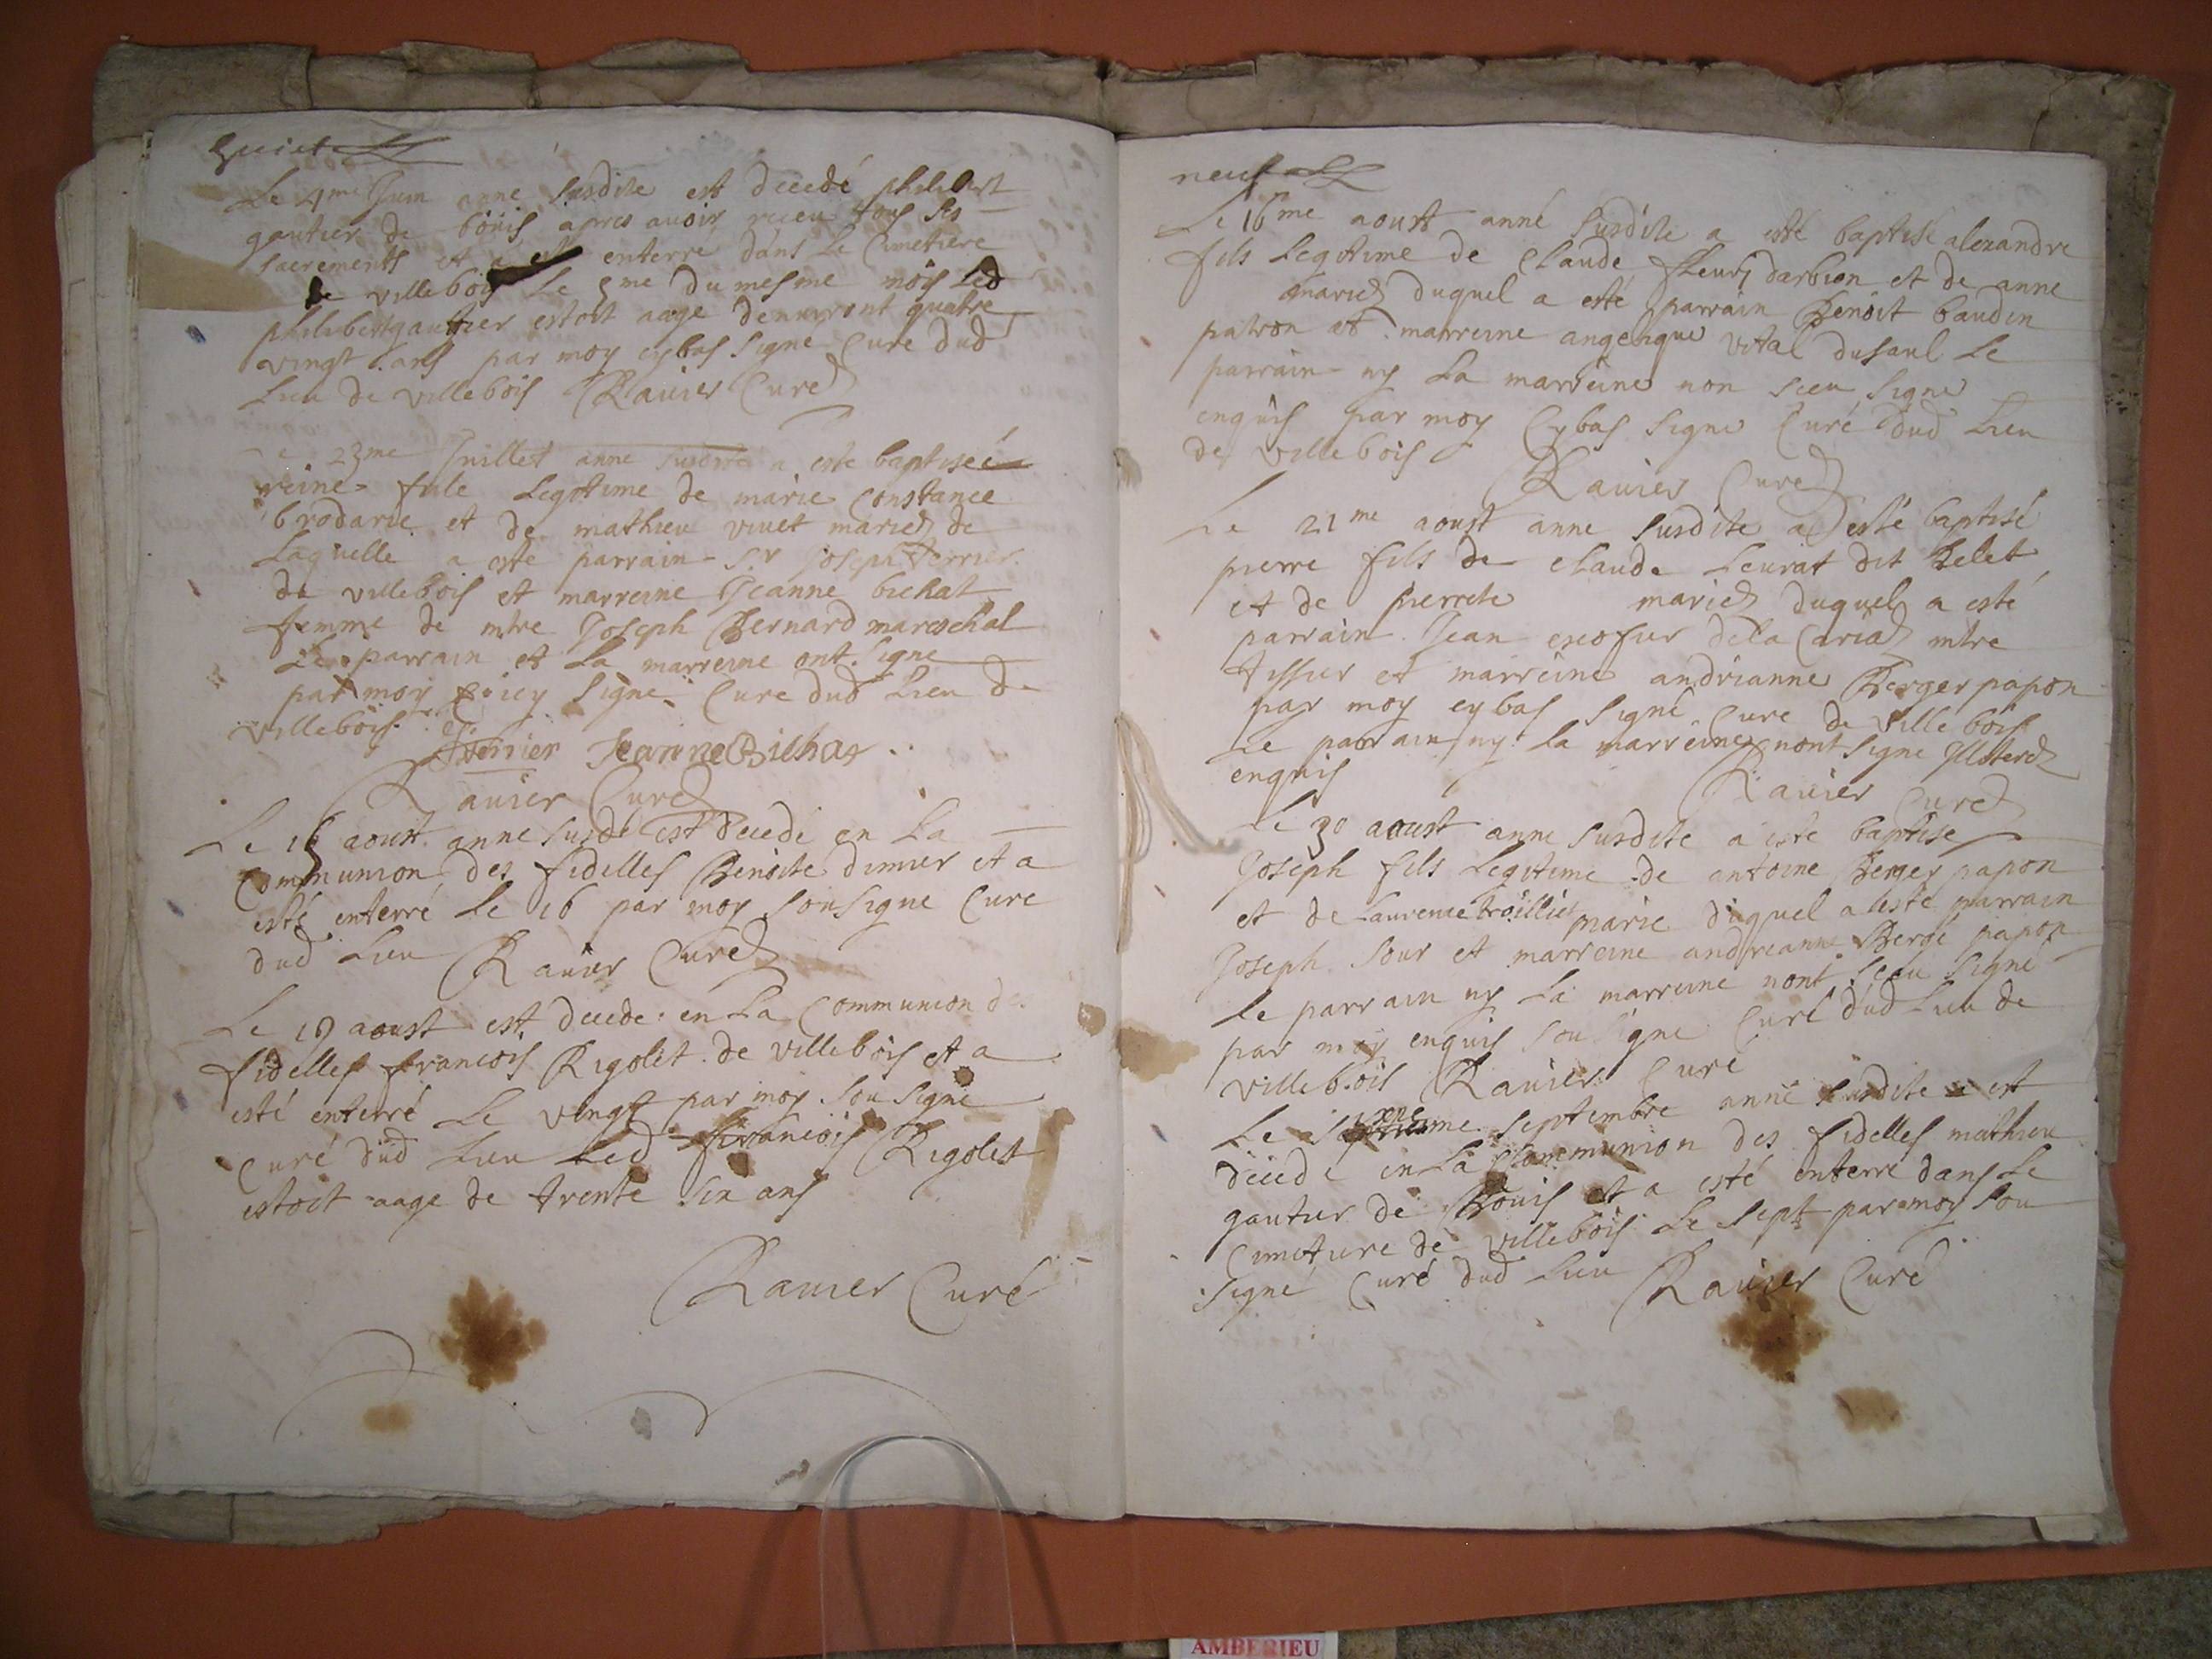 huict
Le 4me Juin anné susdite est decedé philibert
gautier de bouis apres auoir receu tous ses
sacrements et a esté enterré dans Le Cimetiere
de villebois Le 5me du mesme mois Led
philibert gautier estoit aage denuiront quatre
vingt ans par moy cybas signe Cure dud
Lieu de villebois Rauier Curé
Le 23me Juillet anne susdite a este baptiseé
reine fille Legitime de marie Constance
brodarie et de mathieu viuet mariez de
Laquelle a este parrain sr Joseph ferrier
de villebois et marreine Jeanne bichat
femme de mtre Joseph Bernard mareschal
Le parrain et La marreine ont signe
par moy signe Cure dud Lieu de
villebois
Jeanne Bichat
Rauier Curé
Le 15 aoust anne susde est decede en La
Communion des fidelles Benoite dimier et a
esté enterré Le 16 par moy sousigne Cure
dud Lieu Rauier Curé
Le 19 aoust est decede en La Communion des
fidelles francois Rigolet de villebois et a
esté enterré Le vingt par moy sousigne
Curé dud Lieu Led francois Rigolet
estoit aage de trente six ans
Rauier Curé
neuf
Le 16me aoust anné susdite a esté baptisé alexandre
fils Legitime de Claude fleury darbion et de anne
mariez duquel a esté parrain Benoit baudin
patron et marreine angelique vital dusaul Le
parrain ny La marreine non sceu signe
enquis par moy Cybas signe Curé dud Lieu
de villebois
Rauier Curé
Le 21me aoust anne susdite a esté baptisé
pierre fils de claude Leurat dit Belet
et de pierrete mariez duquel a esté
parrain Jean de la mtre
tissier et marreine andrianne Berger papon
par moy cybas signé Cure de villebois
Le parrain ny La marreine nont signe
enquis
Rauier Curé
Le 30 aoust anne susdite a esté baptisé
Joseph fils Legitime de antoine Berger papon
et de Laurence troilliet marie duquel a esté parrain
Joseph sour et marreine andreanne Berge papon
Le parrain ny La marreine nont sceu signe
par moy enquis sousigne Curé dud Lieu de
villebois Rauier Curé
Le sixme septembre anné susdite est
decede en La Communion des fidelles mathieu
gautier de Bouis et a esté enterré dans Le
Cimetiere de villebois Le sept par moy sou
signé Curé dud Lieu Rauier Curé
AMBERIEU